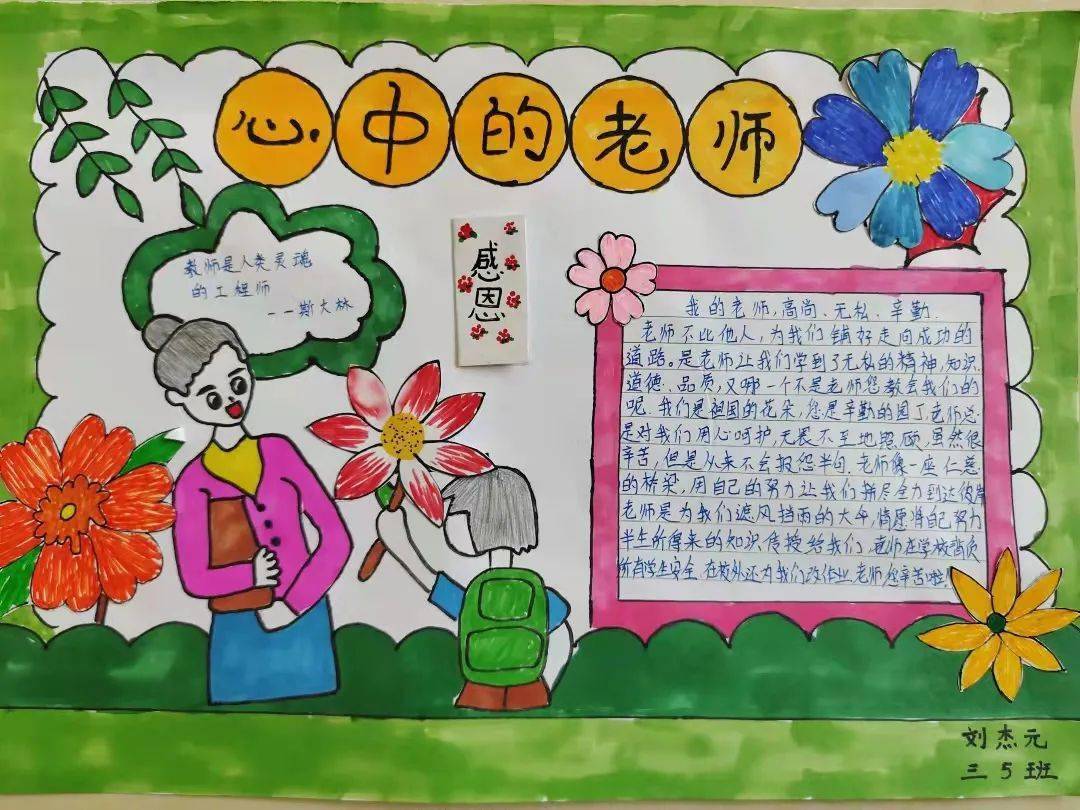 心中的老师
教师是人类灵魂
的工程师
——斯大林
感恩
我的老师,高尚、无私、辛勤.
老师不比他人,为我们铺好走向成功的
道路。是老师让我们学到了无私的精神,知识.
道德、品质,又哪一个不是老师您教会我们的
呢.我们是祖国的花朵,您是辛勤的园丁.老师总
是对我们用心呵护,无畏不至地照顾,虽然很
辛苦,但是从来不会报怨半句.老师像一座仁慈
的桥梁,用自己的努力让我们拼尽全力到达彼岸
老师是为我们遮风挡雨的大伞,情愿将自己努力
半生所得来的知识传授给我们,老师在学校背负
所有学生安全.在校外还为我们改作业,老师您辛苦啦!
刘杰元
三5班